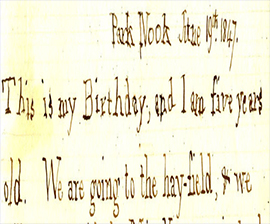 Park Nook June 19th 1847.
This is my Birthday, and I am five years
old. We are going to the hay-field, & we